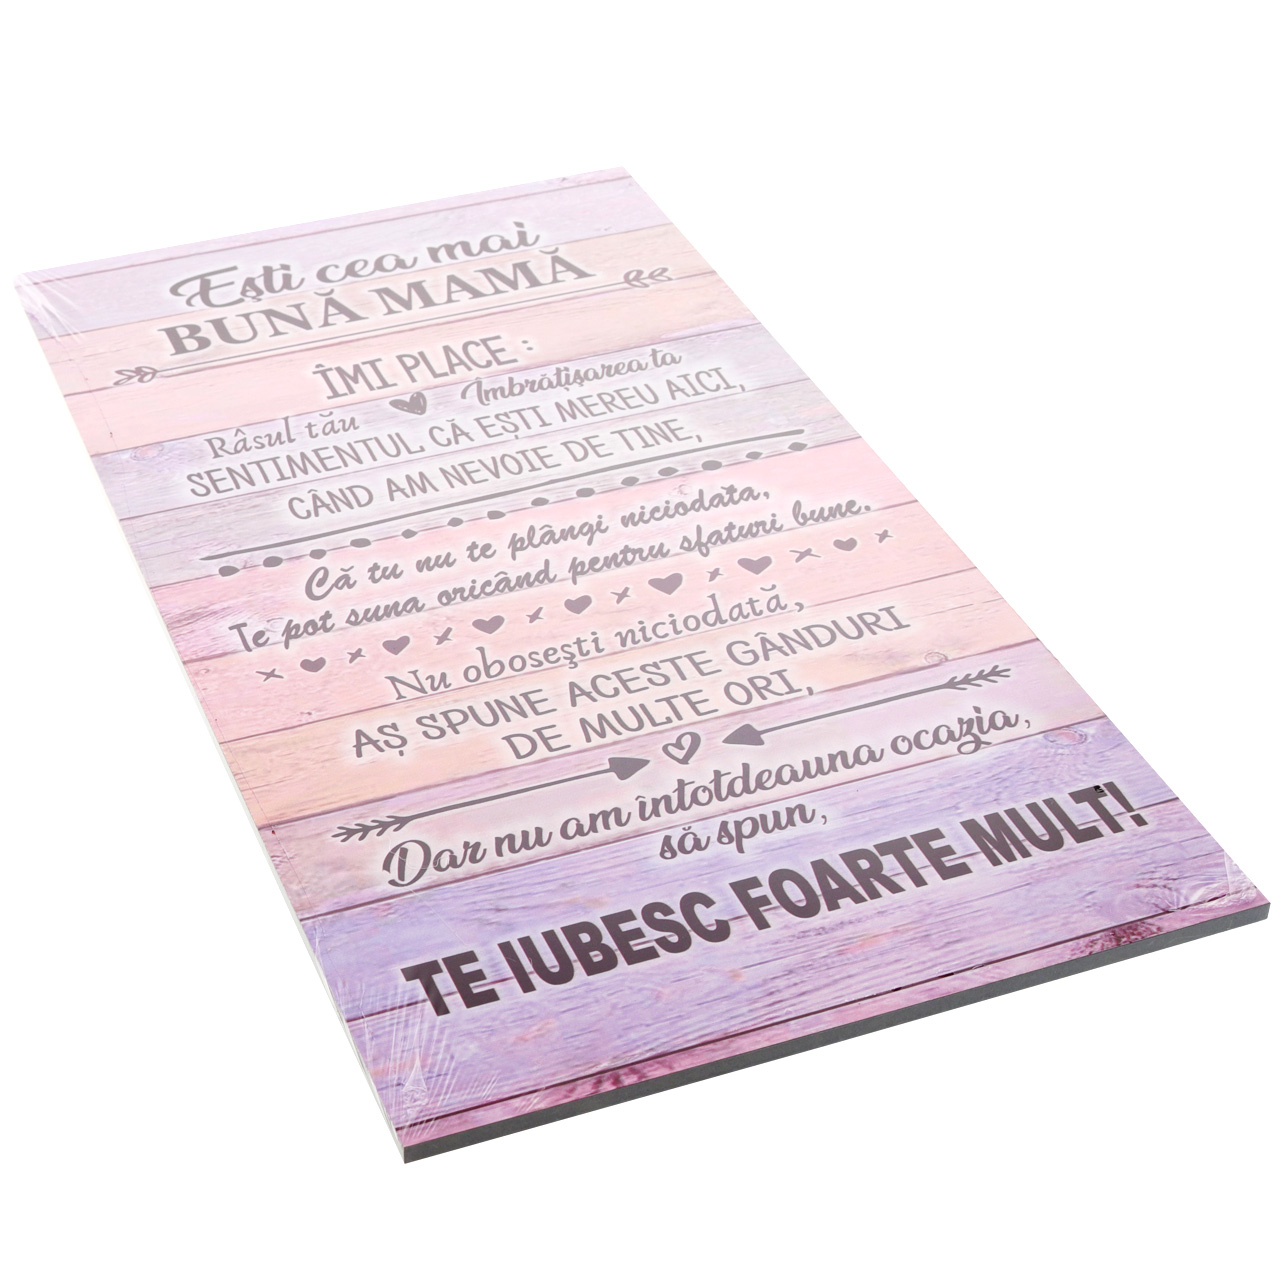 Ești cea mai
BUNĂ MAMĂ
ÎMI PLACE :
Râsul tău Îmbrățișarea ta
SENTIMENTUL CĂ EȘTI MEREU AICI,
CÂND AM NEVOIE DE TINE,
Că tu nu te plângi niciodată,
Te pot suna oricând pentru sfaturi bune.
Nu obosești niciodată,
AȘ SPUNE ACESTE GÂNDURI
DE MULTE ORI,
Dar nu am întotdeauna ocazia,
să spun,
TE IUBESC FOARTE MULT!